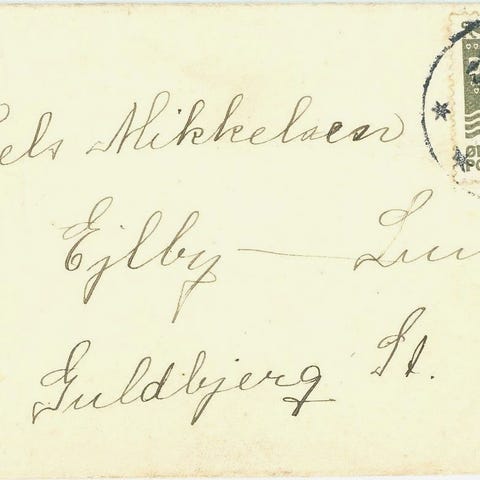 els Mikkelsen
Ejlby — Lun
Guldbjerg St.